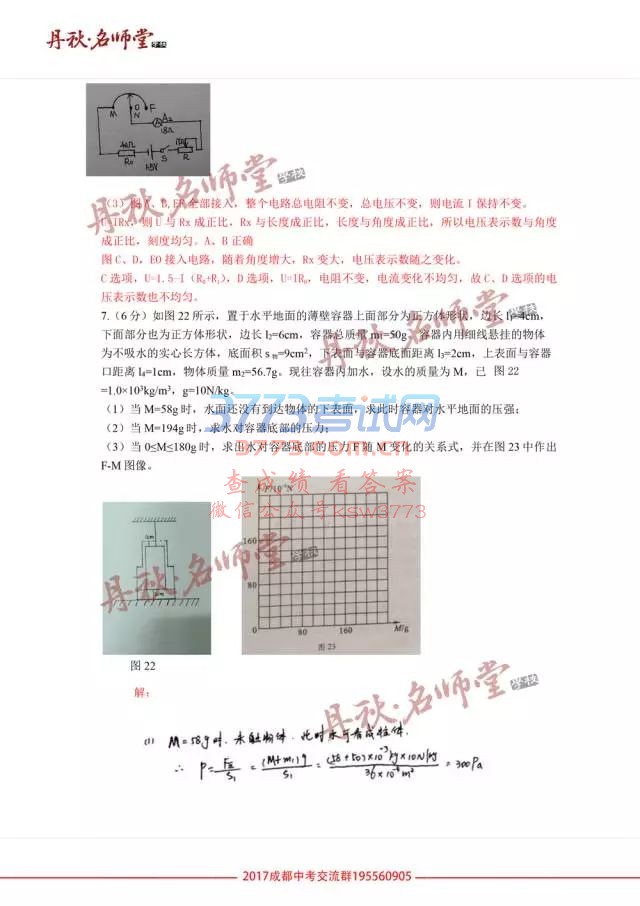 丹秋·名师堂学校
(3)图A、B,EF全部接入，整个电路总电阻不变，总电压不变，则电流I保持不变。
U=IRx，则U与Rx成正比，Rx与长度成正比，长度与角度成正比，所以电压表示数与角度
成正比，刻度均匀。A、B正确
图C、D，EO接入电路，随着角度增大，Rx变大，电压表示数随之变化。
C选项，U=1.5-I（R₀+R₁），D选项，U=IR₀，电阻不变，电流变化不均匀，故C、D选项的电
压表示数也不均匀。
7.（6分）如图22所示，置于水平地面的薄壁容器上面部分为正方体形状，边长l₁=4cm，
下面部分也为正方体形状，边长l₂=6cm，容器总质量m₁=50g，容器内用细线悬挂的物体
为不吸水的实心长方体，底面积s物=9cm²，下表面与容器底面距离l₃=2cm，上表面与容器
口距离l₄=1cm，物体质量m₂=56.7g。现往容器内加水，设水的质量为M，已 图22
=1.0×10³kg/m³，g=10N/kg。
（1）当M=58g时，水面还没有到达物体的下表面，求此时容器对水平地面的压强；
（2）当M=194g时，求水对容器底部的压力；
（3）当0≤M≤180g时，求出水对容器底部的压力F随M变化的关系式，并在图23中作出
F-M图像。
3773考试网
3773.com.cn
查成绩 看答案
微信公众号:ksw3773
F/10⁻²N
160
80
0 80 160 M/g
图23
图22
解：
(1) M=58g时，未触物体，此时水可看成柱体.
∴ P=F压/S₁ = (M+m₁)g/S₁ = (58+50)×10⁻³kg×10N/kg/36×10⁻⁴m² = 300Pa
2017成都中考交流群195560905